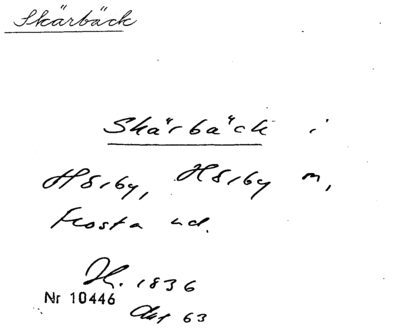 Skärbäck
Skärbäck i
Hörby, Hörby m,
Frosta hd.
H. 1836
Nr 10446
Akt 63